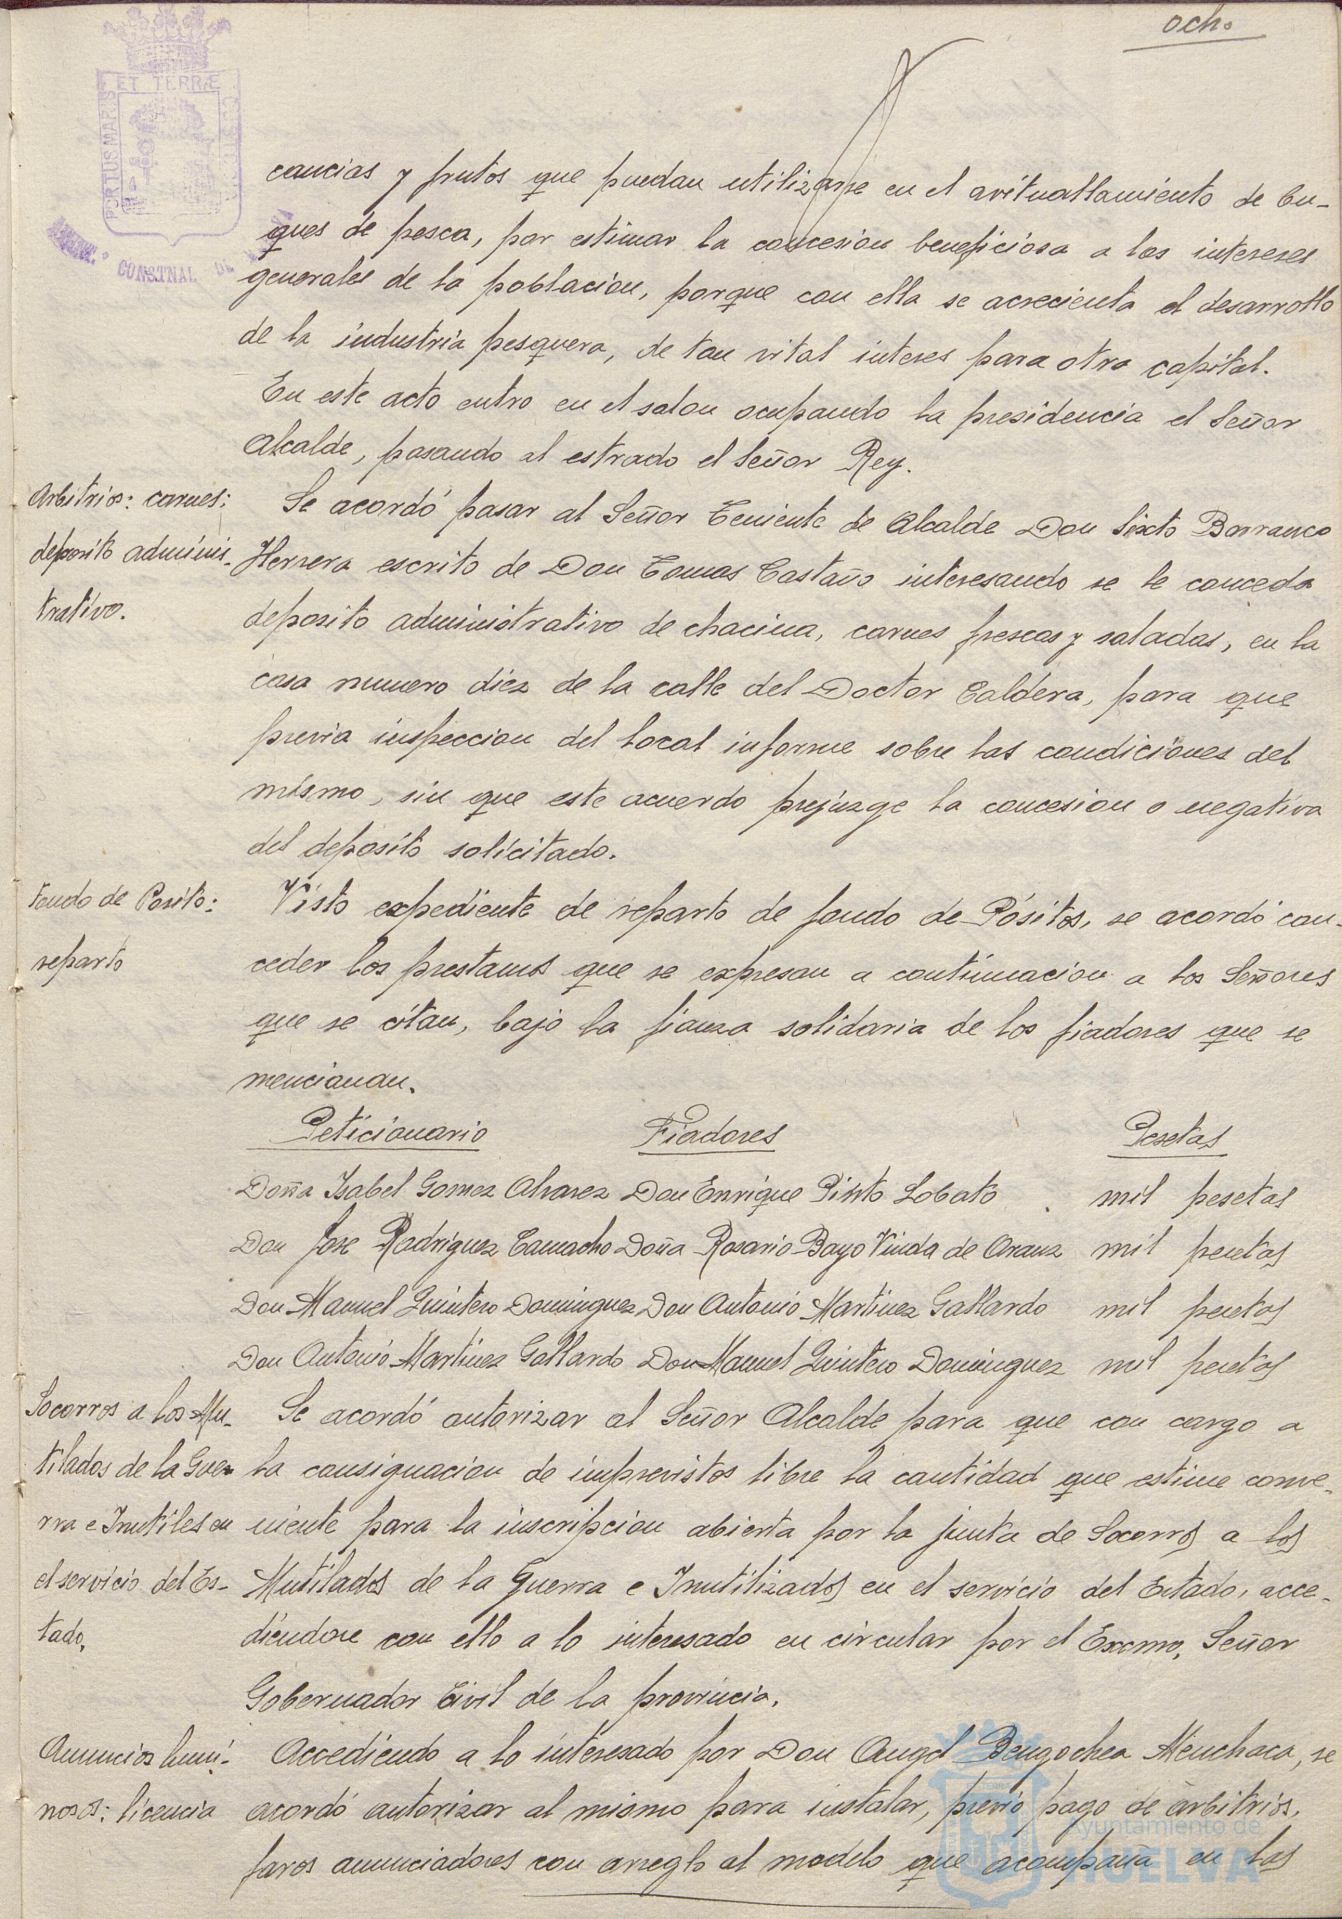 ocho
ET TERRÆ
PORTUS MARIS
CUSTODIA
CONSTNAL DE
cancias y frutos que puedan utilizarse en el avituallamiento de bu-
ques de pesca, por estimar la concesion beneficiosa a los intereses
generales de la poblacion, porque con ella se acrecienta el desarrollo
de la industria pesquera, de tan vital interes para otra capital.
En este acto entro en el salon ocupando la presidencia el Señor
Alcalde, pasando al estrado el Señor Rey.
Arbitrios: carnes:
deposito adminis-
trativo.
Se acordó pasar al Señor Teniente de Alcalde Don Sixto Barranco
Herrera escrito de Don Tomas Castaño interesando se le conceda
deposito administrativo de chacina, carnes frescas y saladas, en la
casa numero diez de la calle del Doctor Caldera, para que
previa inspeccion del local informe sobre las condiciones del
mismo, sin que este acuerdo prejuzge la concesion o negativa
del deposito solicitado.
Fondo de Posito:
reparto
Visto expediente de reparto de fondo de Pósitos, se acordó con-
ceder los prestamos que se expresan a continuacion a los Señores
que se citan, bajo la fianza solidaria de los fiadores que se
mencionan.
Peticionario Fiadores Pesetas
Doña Isabel Gomez Alvarez Don Enrique Pinto Lobato mil pesetas
Don Jose Rodriguez Camacho Doña Rosario Bayo Viuda de Aranz mil pesetas
Don Manuel Quintero Dominguez Don Antonio Martinez Gallardo mil pesetas
Don Antonio Martinez Gallardo Don Manuel Quintero Dominguez mil pesetas
Socorros a los Mu-
tilados de la Gue-
rra e Inutiles en
el servicio del Es-
tado.
Se acordó autorizar al Señor Alcalde para que con cargo a
la consignacion de imprevistos libre la cantidad que estime conve-
niente para la inscripcion abierta por la junta de Socorros a los
Mutilados de la Guerra e Inutilizados en el servicio del Estado, acce-
diendose con ello a lo interesado en circular por el Excmo. Señor
Gobernador Civil de la provincia.
Anuncios lumi-
nosos: licencia
Accediendo a lo interesado por Don Angel Bengochea Menchaca, se
acordó autorizar al mismo para instalar, previo pago de arbitrios,
faros anunciadores con arreglo al modelo que acompaña en las
Ayuntamiento de
HUELVA